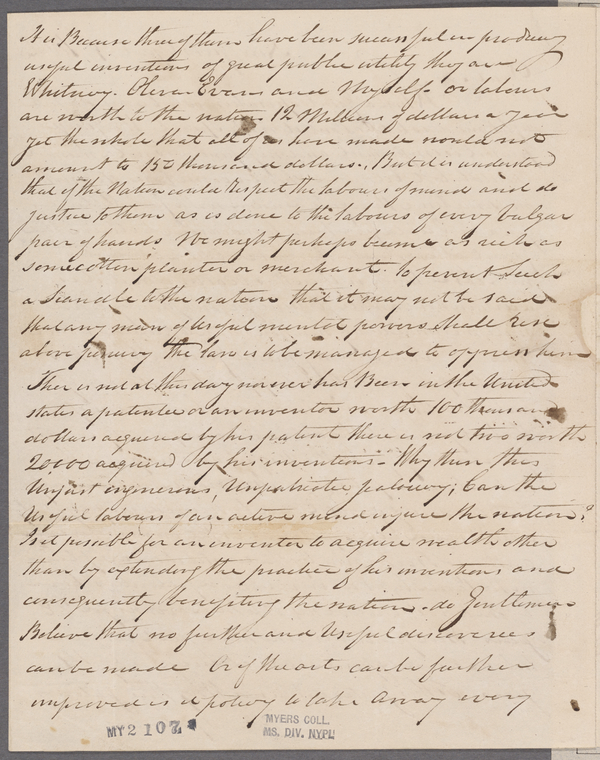 It is Because three of them have been successful in producing
useful inventions of great public utility they are
Whitney. Oliver Evans and Myself. or labours
are worth to the nation 12 Millions of dollars a year
yet the whole that all of us have made would not
amount to 150 thousand dollars., But it is understood
that if the Nation could respect the labours of mind and do
justice to them as is done to the labours of every vulgar
pair of hands We might perhaps become as rich as
some cotton planter or merchant. to prevent Such
a Scandle to the nation that it may not be said
that any man of Useful mental powers shall rise
above penury the law is to be managed to oppress him
Ther is not at this day nor ever has Been in the United
states a patentee or an inventor worth 100 thousand
dollars acquired by his patent there is not two worth
20000 acquired by his inventions - Why then this
Unjust ungenerous, Unpatriotic ; Can the
Useful labours of an active mind injure the nation?
Is it possible for an inventor to acquire wealth other
than by extending the practice of his inventions and
consequently benefiting the nation. do Gentlemen
Believe that no further and Useful discoveries
can be made Or if the arts can be further
improved is it policy to take away every
MY 2 107
MYERS COLL.
MS. DIV. NYPL